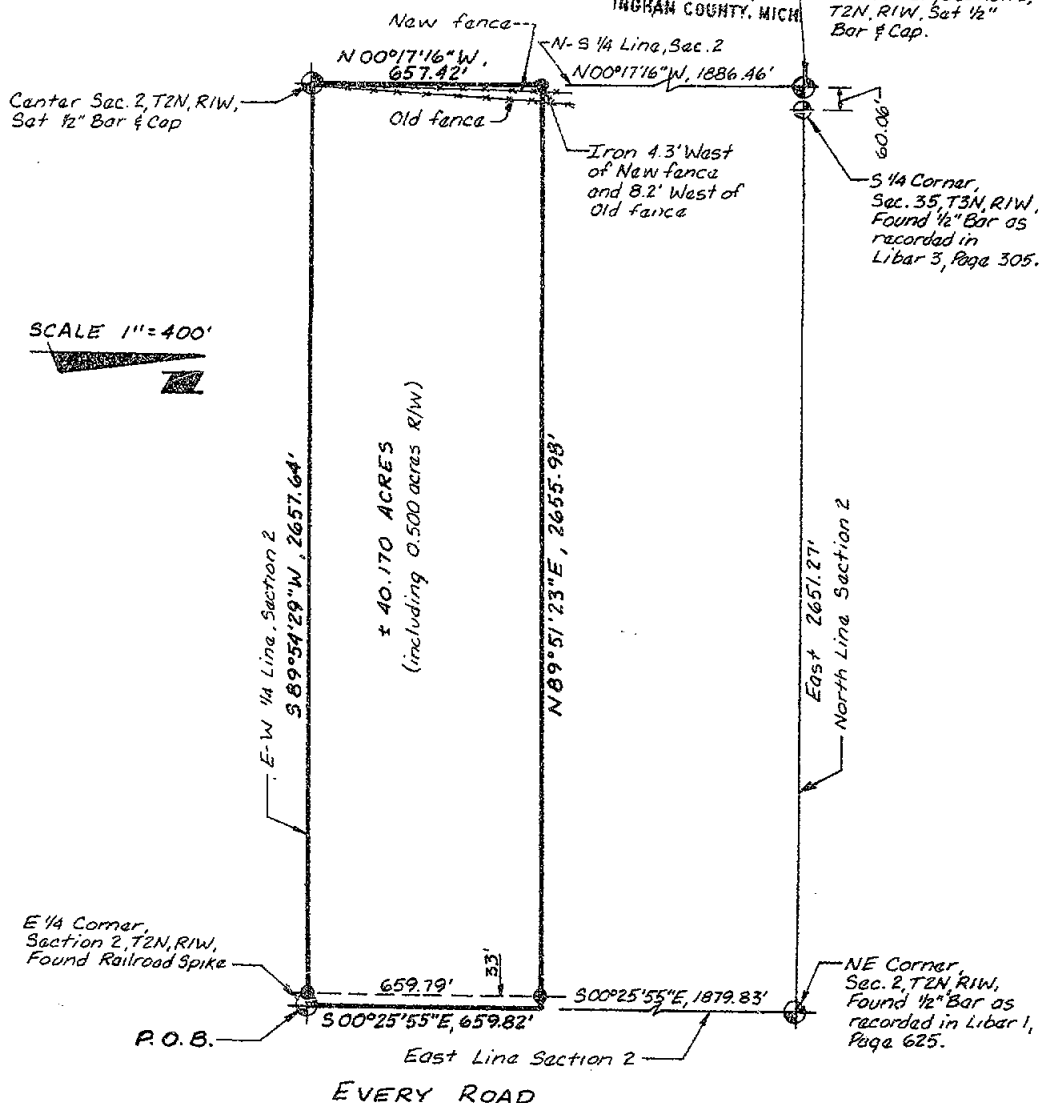 INGHAM COUNTY, MICH
T2N, R1W, Set ½"
Bar & Cap.
New fence
N 00°17'16" W,
657.42'
N-S ¼ Line, Sec. 2
N00°17'16"W, 1886.46'
Center Sec. 2, T2N, R1W,
Set ½" Bar & Cap
Old fence
60.06'
Iron 4.3' West
of New fence
and 8.2' West of
Old fence
S ¼ Corner,
Sec. 35, T3N, R1W,
Found ½" Bar as
recorded in
Liber 3, Page 305.
SCALE 1"=400'
N
E-W ¼ Line, Section 2
S 89°54'29" W, 2657.64'
± 40.170 ACRES
(including 0.500 acres R/W)
N 89°51'23" E, 2655.98'
East 2651.27'
North Line Section 2
E ¼ Corner,
Section 2, T2N, R1W,
Found Railroad Spike
659.79'
33'
S 00°25'55"E, 659.82'
S00°25'55"E, 1879.83'
P.O.B.
East Line Section 2
NE Corner,
Sec. 2, T2N, R1W,
Found ½" Bar as
recorded in Liber 1,
Page 625.
EVERY ROAD